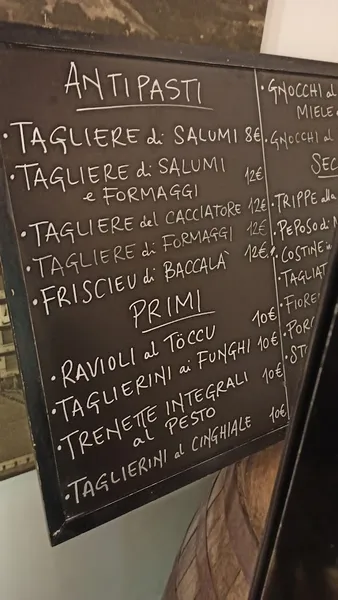 ANTIPASTI
· TAGLIERE di SALUMI 8€
· TAGLIERE di SALUMI
e FORMAGGI 12€
· TAGLIERE del CACCIATORE 12€
· TAGLIERE di FORMAGGI 12€
· FRISCIEU di BACCALÀ 12€
PRIMI
· RAVIOLI al TÖCCU 10€
· TAGLIERINI ai FUNGHI 10€
· TRENETTE INTEGRALI
al PESTO 10€
· TAGLIERINI al CINGHIALE 10€
· GNOCCHI al
MIELE
· GNOCCHI al
SEC
· TRIPPE alla
· PEPOSO di
· COSTINE in
· TAGLIAT
· FIORE
· PORC
· ST